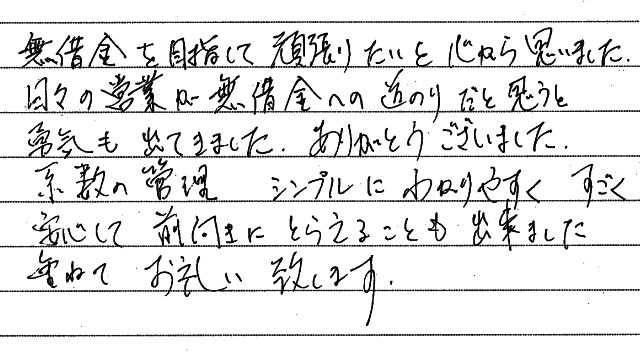 無借金を目指して頑張りたいと心から思いました.
日々の営業が無借金への道のりだと思うと
勇気も出てきました. ありがとうございました.
系数の管理 シンプルにわかりやすく すごく
安心して前向きにとらえることも出来ました
重ねてお礼い致します.